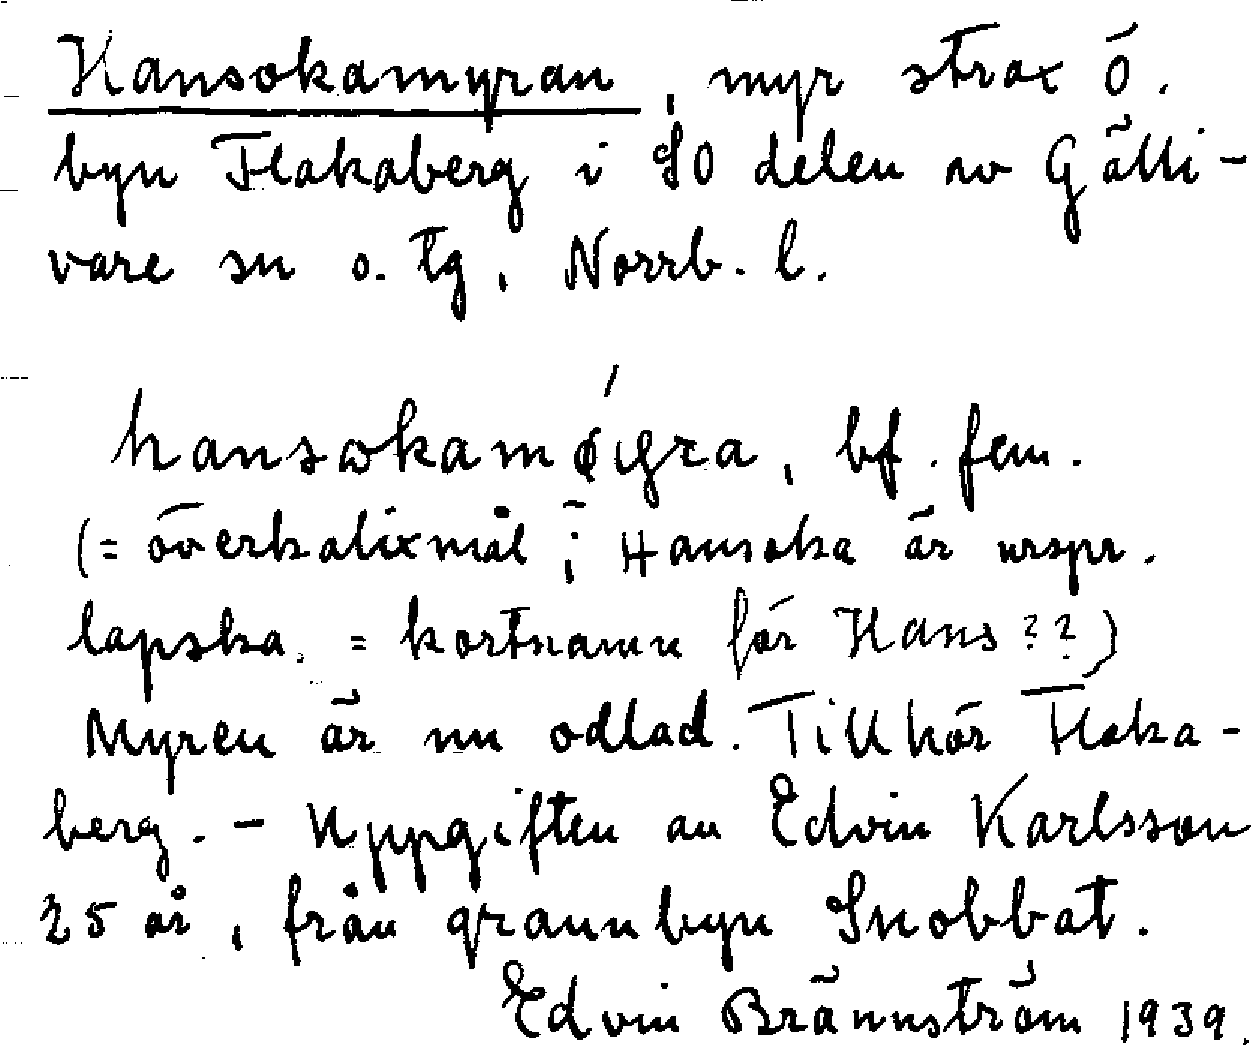 Hansokamyran, myr strax ö.
byn Flakaberg i SO delen av Gälli-
vare sn o. tg, Norrb. l.
hansωkamǿıgra, bf. fem.
(= överkalixmål; Hansoka är urspr.
lapska. = kortnamn för Hans??)
Myren är nu odlad. Tillhör Flaka-
berg. - Uppgiften av Edvin Karlsson
25 år, från grannbyn Snobbat.
Edvin Brännström 1939.